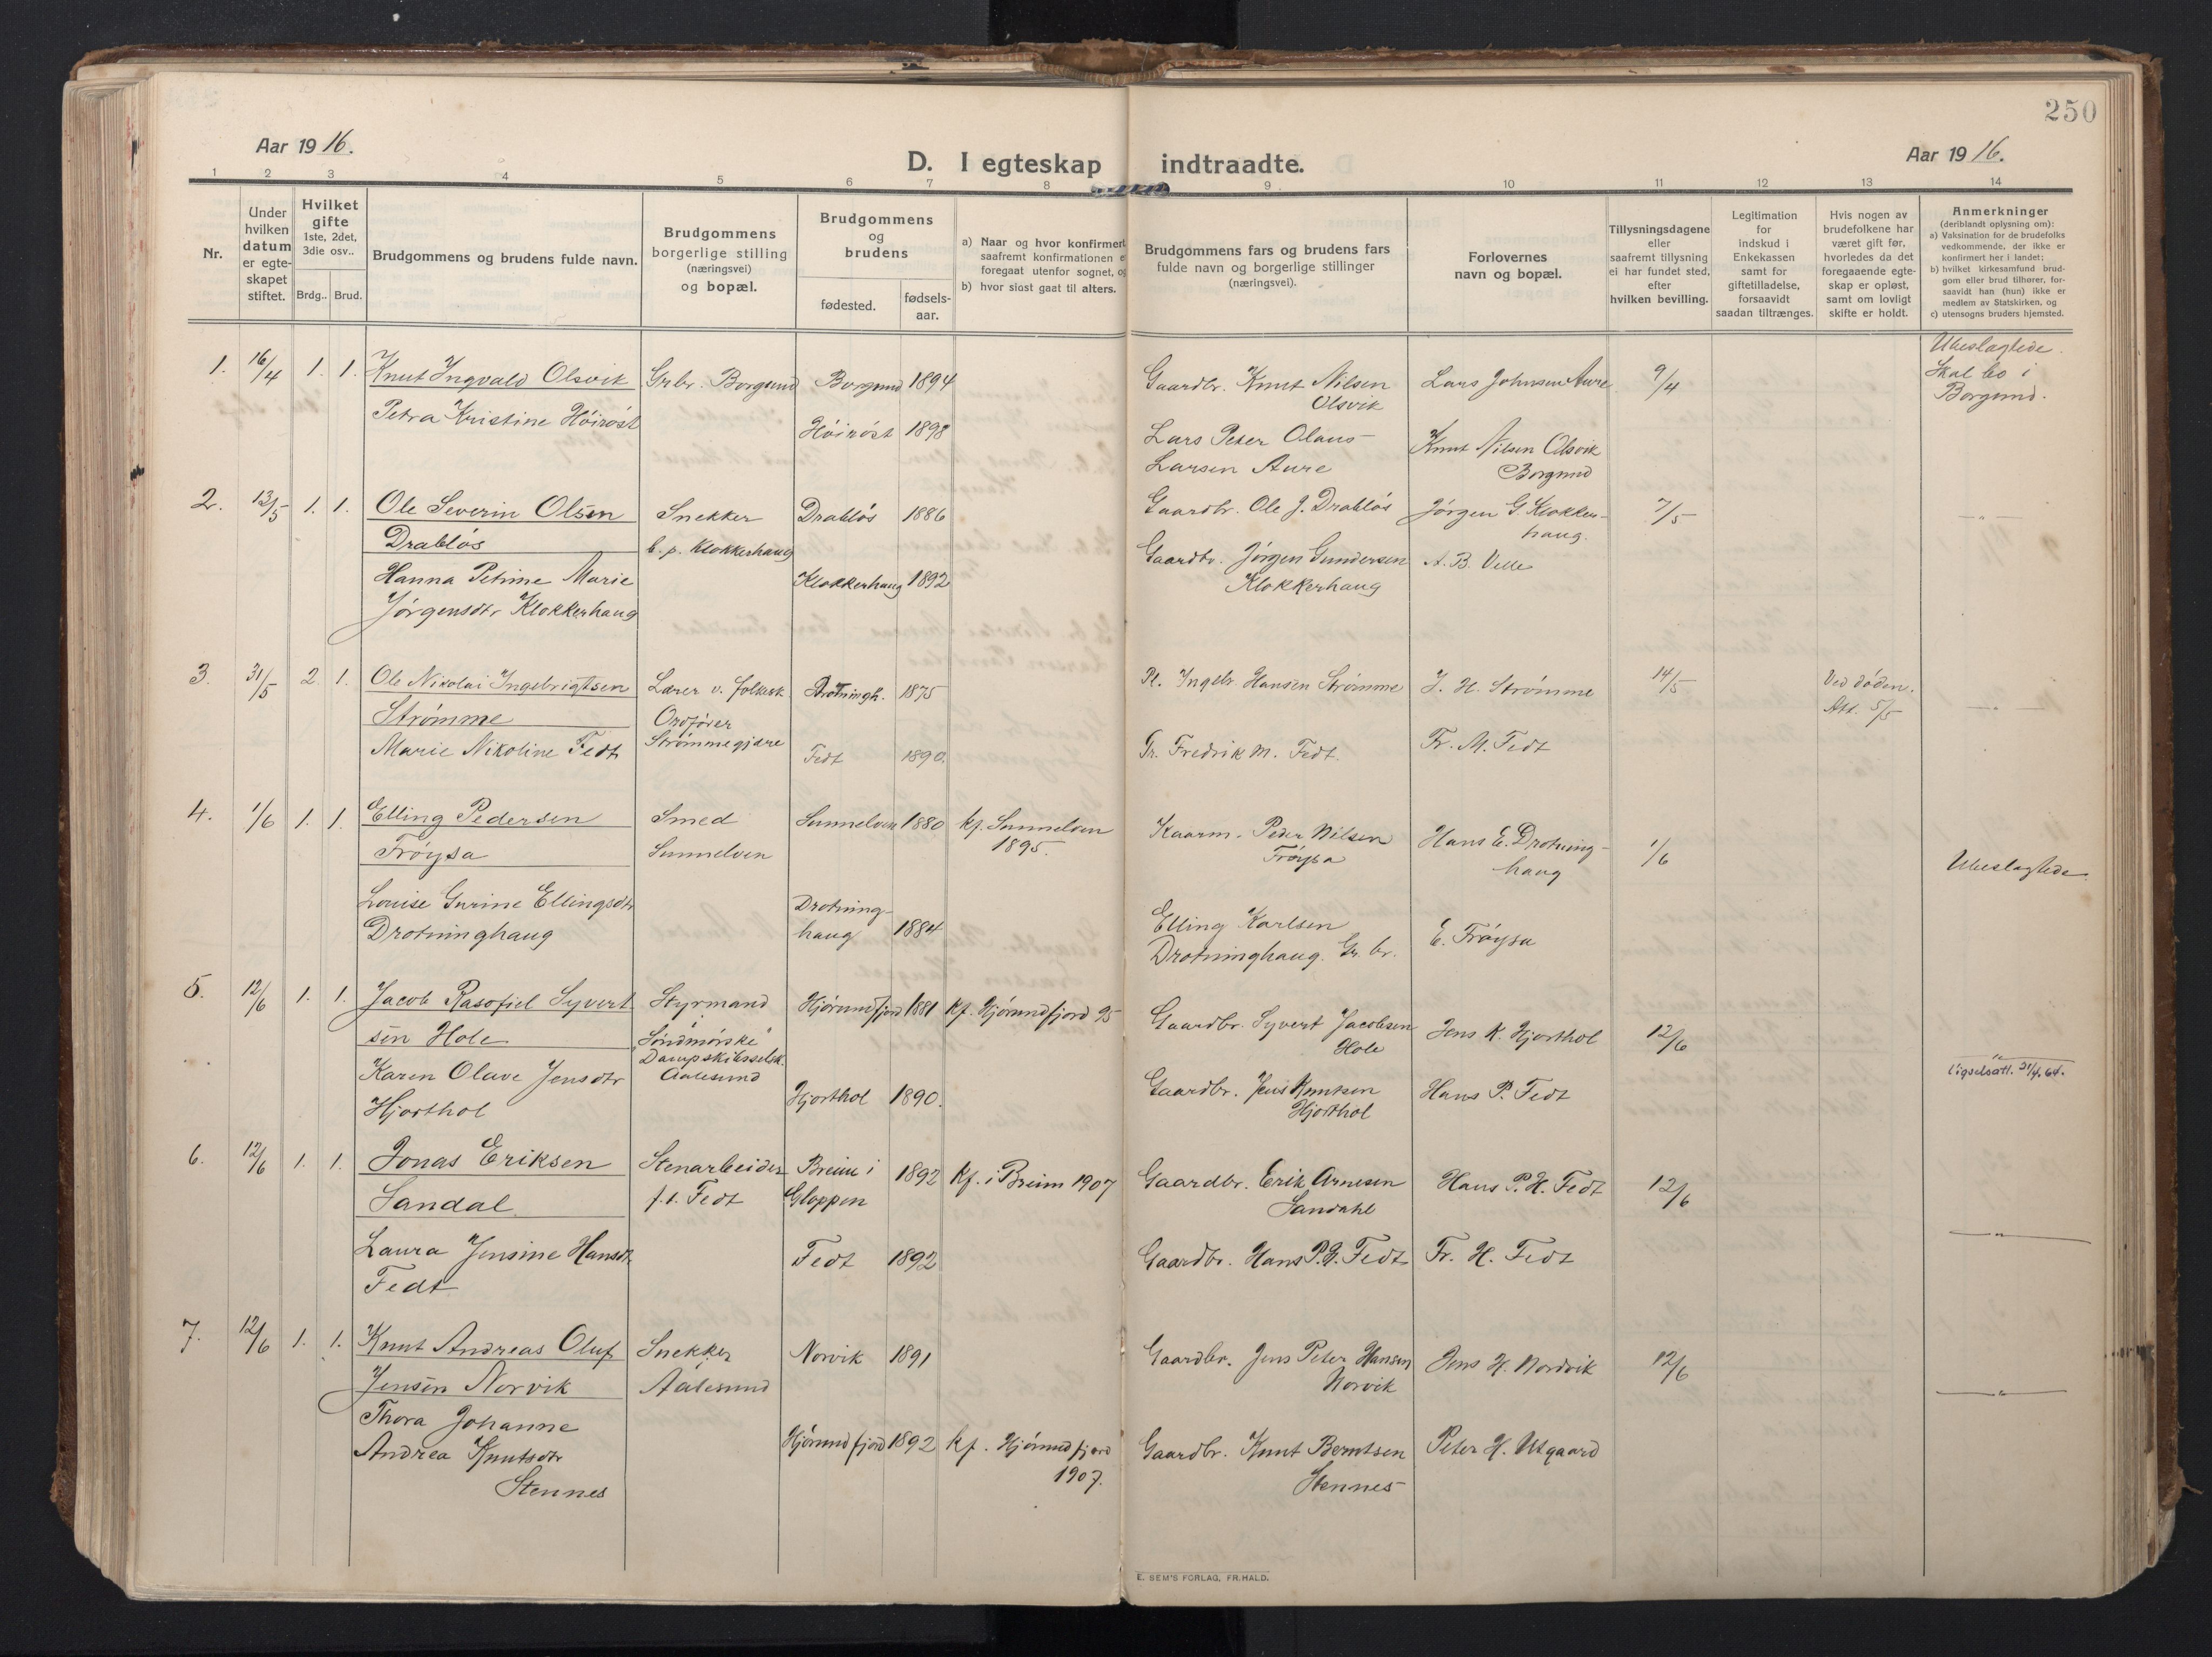 250
Aar 1916.
D. I egteskap indtraadte.
Aar 1916.
1 2 3 4 5 6 7 8 9 10 11 12 13 14
Nr.
Under hvilken datum er egteskapet stiftet.
Hvilket gifte 1ste, 2det, 3die osv..
Brdg.. Brud.
Brudgommens og brudens fulde navn.
Brudgommens borgerlige stilling (næringsvei) og bopæl.
Brudgommens og brudens
fødested.
fødsels-aar.
a) Naar og hvor konfirmert
saafremt konfirmationen e
foregaat utenfor sognet, og
b) hvor sidst gaat til alters.
Brudgommens fars og brudens fars
fulde navn og borgerlige stillinger
(næringsvei).
Forlovernes
navn og bopæl.
Tillysningsdagene
eller
saafremt tillysning
ei har fundet sted,
efter
hvilken bevilling.
Legitimation
for
indskud i
Enkekassen
samt for
giftetilladelse,
forsaavidt
saadan tiltrænges.
Hvis nogen av
brudefolkene har
været gift før,
hvorledes da det
foregaaende egte-
skap er opløst,
samt om lovligt
skifte er holdt.
Anmerkninger
(deriblandt oplysning om):
a) Vaksination for de brudefolks
vedkommende, der ikke er
konfirmert her i landet;
b) hvilket kirkesamfund brud-
gom eller brud tilhører, for-
saavidt han (hun) ikke er
medlem av Statskirken, og
c) utensogns bruders hjemsted.
1. 16/4 1. 1. Knut Ingvald Olsvik Grbr. Borgund Borgund 1894 Gaardbr. Knut Nilsen Olsvik Lars Johnsen Aure 9/4 Ubeslægtede. Skal bo i Borgund.
Petra Kristine Höiröst Höiröst 1898 Lars Peter Olaus Larsen Aure Knut Nilsen Olsvik Borgund
2. 13/5 1. 1. Ole Severin Olsen Drabløs Snekker b. p. Klokkerhaug Drabløs 1886 Gaardbr. Ole J. Drabløs Jørgen G. Klokkerhaug. 7/5 - " -
Hanna Petrine Marie Jørgensdtr Klokkerhaug Klokkerhaug 1892 Gaardbr. Jørgen Gundersen Klokkerhaug A. B. Velle
3. 31/5 2. 1. Ole Nikolai Ingebrigtsen Strømme Lærer v. folkesk. Ordfører Strømmegjære Drotningh. 1875 Pl. Ingebr. Hansen Strømme J. H. Strømme 14/5 Ved døden. Att. 5/5 - " -
Marie Nikoline Fedt Fedt 1890. Gr. Fredrik M. Fedt. Fr. M. Fedt
4. 1/6 1. 1. Elling Pedersen Frøysa Smed Sunnelven Sunnelven 1880 kf. Sunnelven 1895. Kaarm. Peder Nilsen Frøysa Hans E. Drotninghaug 1/6 Ubeslægtede
Louise Gurine Ellingsdtr Drotninghaug Drotninghaug 1884 Elling Karlsen Drotninghaug. Gr. br. E. Frøysa
5. 12/6 1. 1. Jacob Rasofiel Syvertsen Hole Styrmand "Søndmørske" Dampskibsselsk. Aalesund Hjørundfjord 1881 kf. Hjørundfjord 95 Gaardbr. Syvert Jacobsen Hole Jens K. Hjorthol 12/6 - " -
Karen Olave Jensdtr Hjorthol Hjorthol 1890. Gaardbr. Jens Knutsen Hjorthol Hans P. Fedt Vigselsatt. 21/4.64.
6. 12/6 1. 1. Jonas Eriksen Sandal Stenarbeider f.t. Fedt Breim i Gloppen 1892 kf. i Breim 1907 Gaardbr. Erik Arnesen Sandahl Hans P. H. Fedt 12/6
Laura Jensine Hansdtr Fedt Fedt 1892 Gaardbr. Hans P. H. Fedt Fr. H. Fedt - " -
7. 12/6 1. 1. Knut Andreas Oluf Jensen Norvik Snekker Aalesund Norvik 1891 Gaardbr. Jens Peter Hansen Norvik Jens H. Nordvik 12/6 - " -
Thora Johanne Andrea Knutsdtr Stennes Hjørundfjord 1892 kf. Hjørundfjord 1907. Gaardbr. Knut Berntsen Stennes Peter H. Utgaard
E. SEM'S FORLAG, FR.HALD.